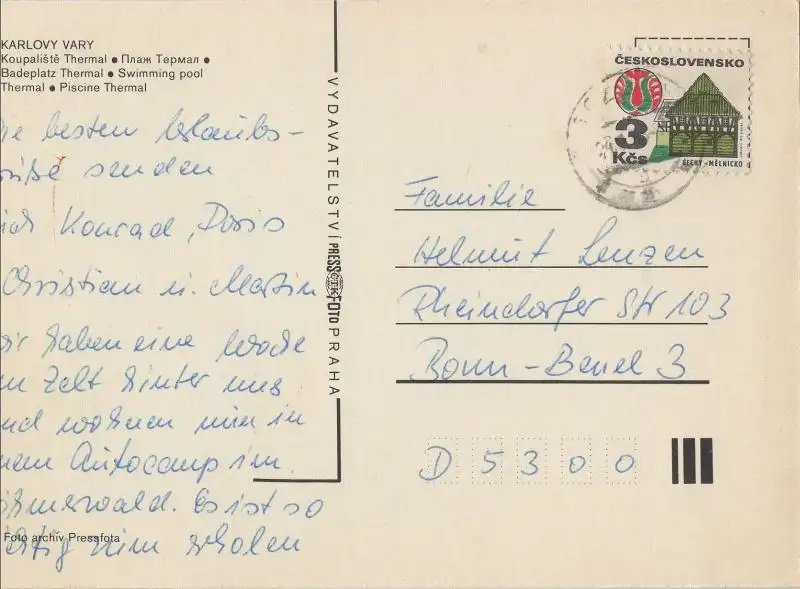 KARLOVY VARY
Koupaliště Thermal ● Пляж Термал ●
Badeplatz Thermal ● Swimming pool
Thermal ● Piscine Thermal
ie besten Urlaubs-
rüße senden
Konrad, Doris
Christian u. Martin
ir haben eine Woche
m Zelt hinter uns
nd wohnen nun in
nem Autocamp im
öhmerwald. Es ist so
erholen
Foto archív Pressfota
VYDAVATELSTVÍ PRESSFOTO PRAHA
ČTK
ČESKOSLOVENSKO
3
Kčs
ČECHY - MĚLNICKO
Familie
Helmut Lenzen
Rheindorfer Str 103
Bonn - Beuel 3
D 5300